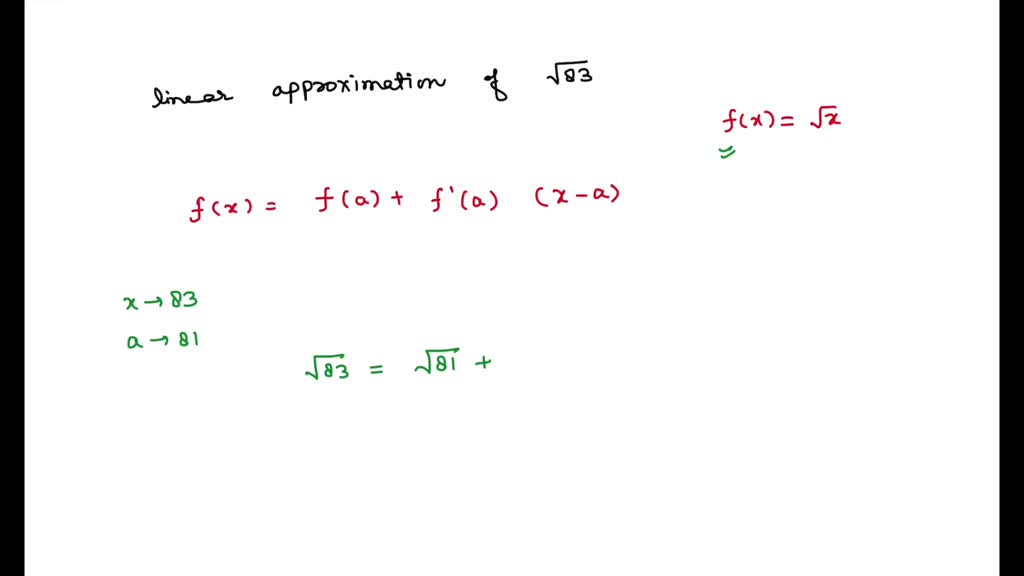 linear approximation of √83
f(x) = √x
f(x) = f(a) + f'(a) (x-a)
x → 83
a → 81
√83 = √81 +